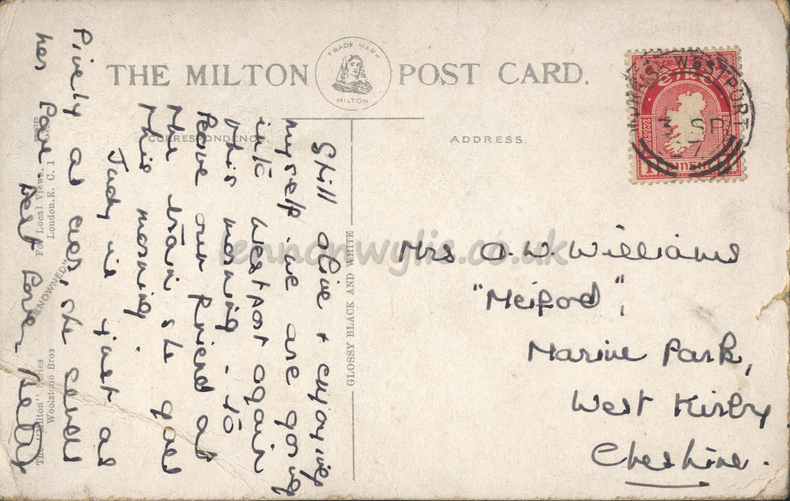 THE MILTON POST CARD.
TRADE MARK
MILTON
CORRESPONDENCE
ADDRESS.
Still alive & enjoying
myself. we are going
into Westport again
this morning - to
leave our friend at
the train she goes
this morning.
Judy is just as
lively as ever, she sends
her love
Best love
Mrs O.W. Williams
"Meifod",
Marine Park,
West Kirby
Cheshire.
GLOSSY BLACK AND WHITE
The "Milton" Series
Woolstone Bros
"RENOWNED"
For Local Views.
London. E. C. 1
WESTPORT
3 SP
27
lennonwylie.co.uk